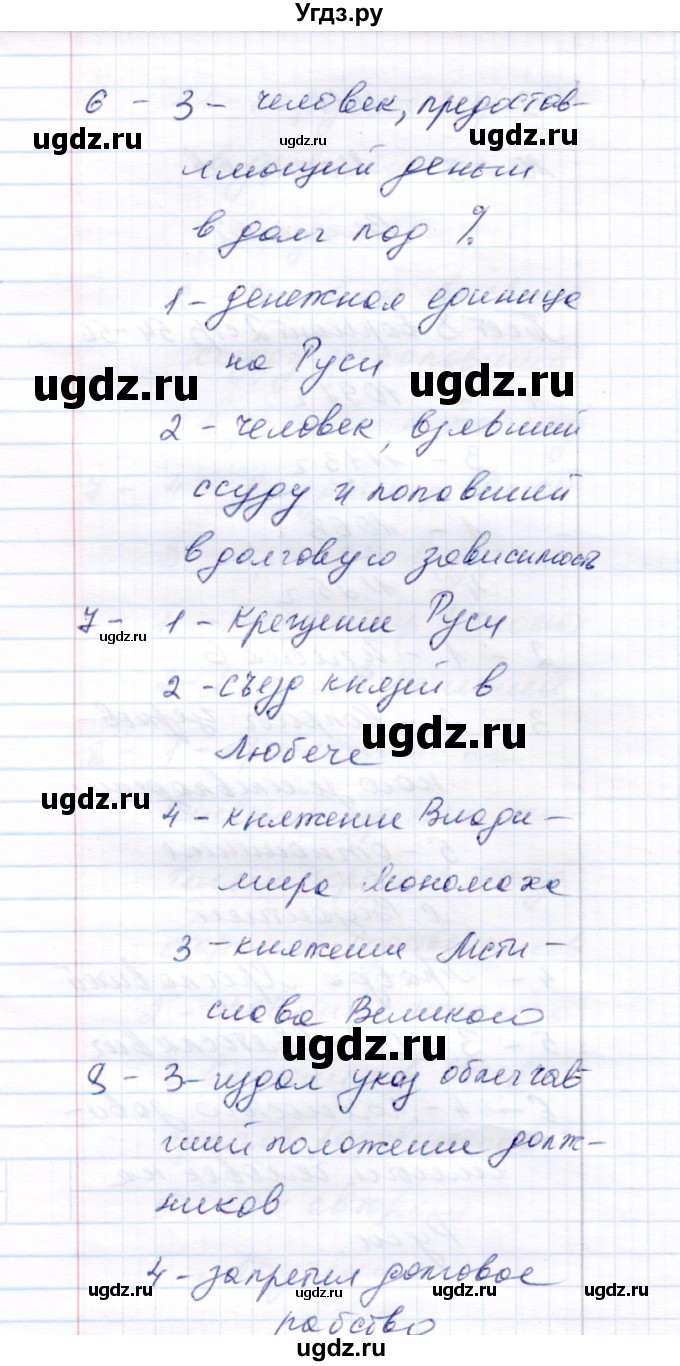 Угдз.ру
6 - 3 - человек, предостав-
ляющий деньги
в долг под %
1 - денежная единица
на Руси
2 - человек, взявший
ссуду и попавший
в долговую зависимость
7 - 1 - Крещение Руси
2 - съезд князей в
Любече
4 - княжение Влади-
мира Мономаха
3 - княжение Мсти-
слава Великого
8 - 3 - издал указ облегчав-
ший положение долж-
ников
4 - запретил долговое
рабство
ugdz.ru
ugdz.ru
ugdz.ru
ugdz.ru
ugdz.ru
ugdz.ru
ugdz.ru
ugdz.ru
ugdz.ru
ugdz.ru
ugdz.ru
ugdz.ru
ugdz.ru